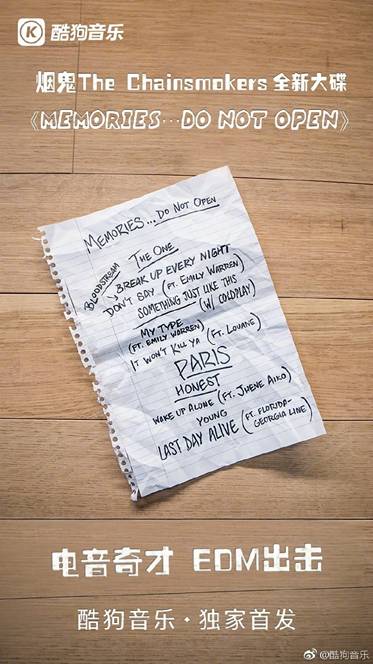 酷狗音乐
烟鬼The Chainsmokers全新大碟
《MEMORIES...DO NOT OPEN》
MEMORIES...DO NOT OPEN
THE ONE
BLOODSTREAM
BREAK UP EVERY NIGHT
DON'T SAY (FT. EMILY WARREN)
SOMETHING JUST LIKE THIS
(W/ COLDPLAY)
MY TYPE
(FT. EMILY WARREN)
IT WON'T KILL YA (FT. LOUANE)
PARIS
HONEST
WAKE UP ALONE (FT. JHENE AIKO)
YOUNG
LAST DAY ALIVE (FT. FLORIDA-
GEORGIA LINE)
电音奇才 EDM出击
酷狗音乐·独家首发
@酷狗音乐